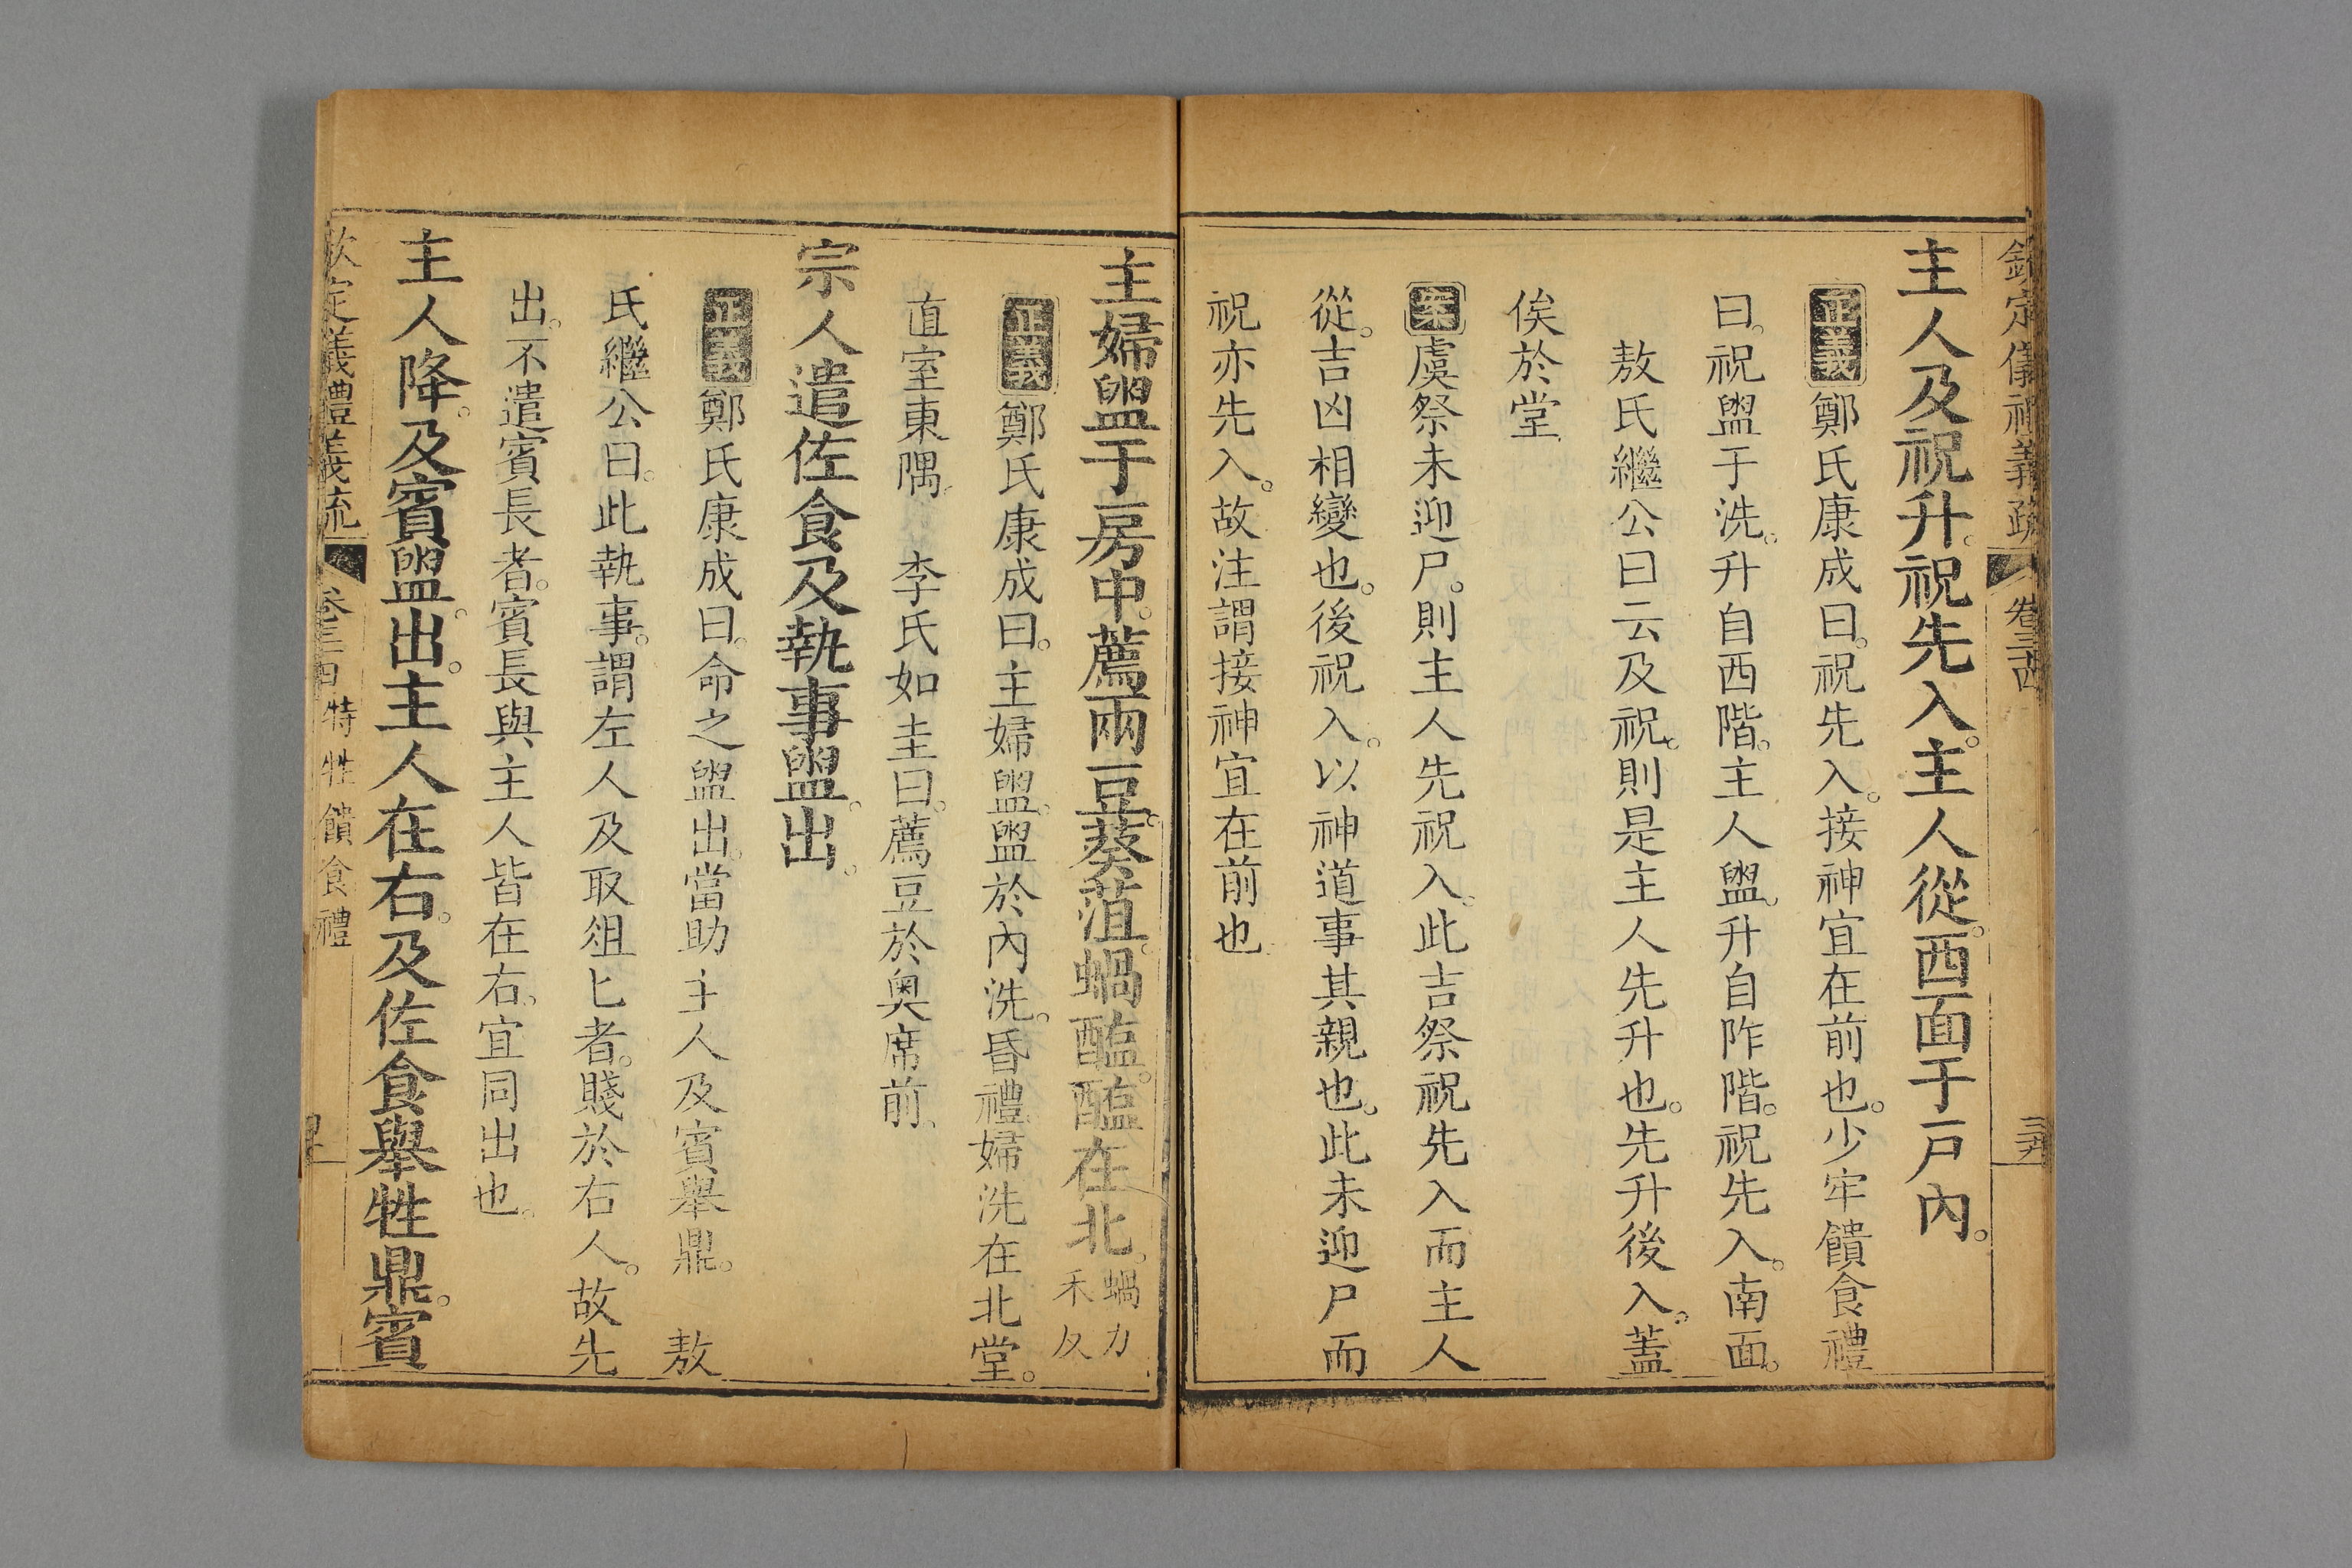 欽定儀禮義疏 卷三十四
主人及祝升。祝先入。主人從。西面于戶內。
正義鄭氏康成曰。祝先入。接神宜在前也。少牢饋食禮
曰。祝盥于洗。升自西階。主人盥。升自阼階。祝先入。南面。
敖氏繼公曰云及祝。則是主人先升也。先升後入。蓋
俟於堂
案虞祭未迎尸。則主人先祝入。此吉祭祝先入而主人
從。吉凶相變也。後祝入。以神道事其親也。此未迎尸而
祝亦先入。故注謂接神宜在前也
主婦盥于房中。薦兩豆。葵菹。蝸醢。醢在北。蝸力禾反
正義鄭氏康成曰。主婦盥。盥於內洗。昏禮。婦洗在北堂。
直室東隅。 李氏如圭曰。薦豆於奧席前。
宗人遣佐食及執事盥。出。
正義鄭氏康成曰。命之盥出。當助主人及賓舉鼎。 敖
氏繼公曰。此執事。謂左人及取俎匕者。賤於右人。故先
出。不遣賓長者。賓長與主人皆在右。宜同出也。
主人降。及賓盥。出。主人在右。及佐食舉牲鼎。賓
欽定儀禮義疏 卷三十四 特牲饋食禮